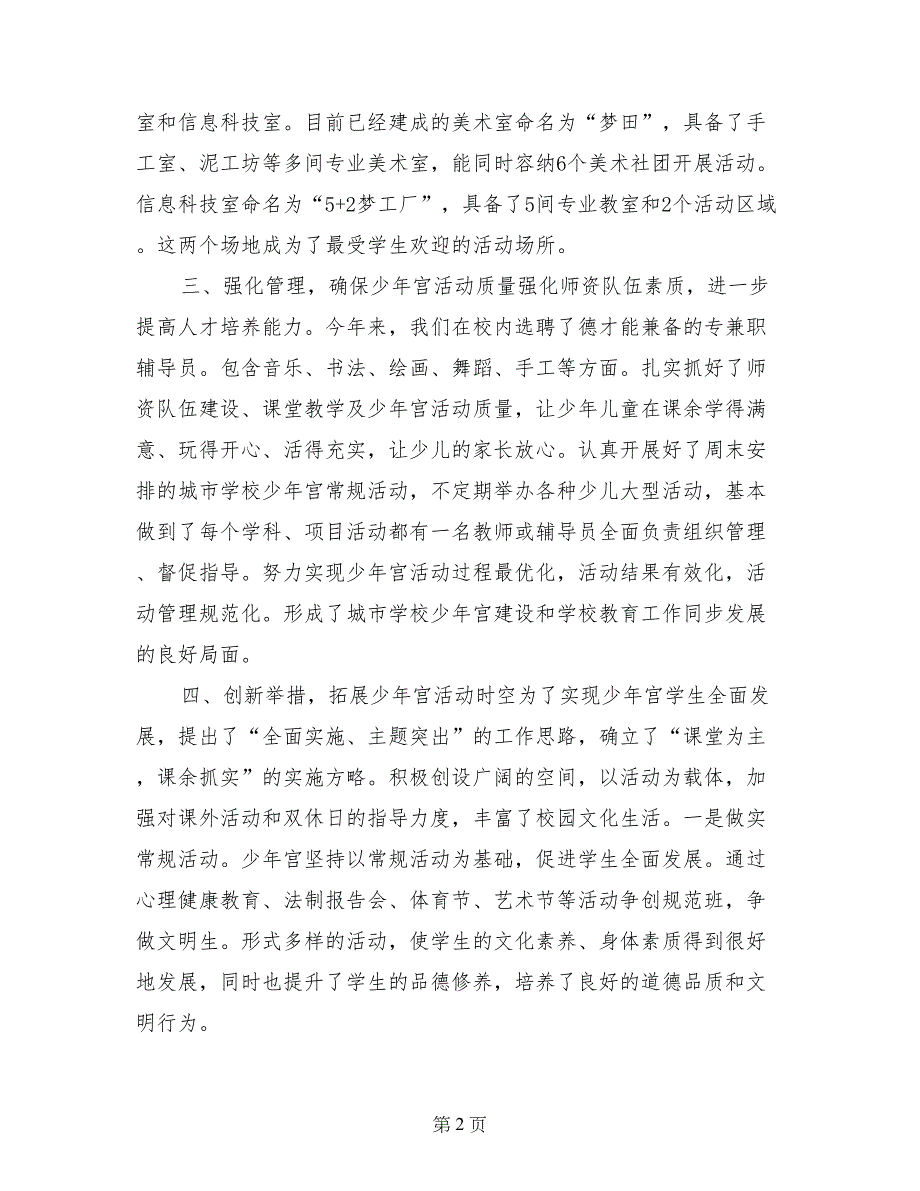 室和信息科技室。目前已经建成的美术室命名为“梦田”，具备了手
工室、泥工坊等多间专业美术室，能同时容纳6个美术社团开展活动。
信息科技室命名为“5+2梦工厂”，具备了5间专业教室和2个活动区域
。这两个场地成为了最受学生欢迎的活动场所。
三、强化管理，确保少年宫活动质量强化师资队伍素质，进一步
提高人才培养能力。今年来，我们在校内选聘了德才能兼备的专兼职
辅导员。包含音乐、书法、绘画、舞蹈、手工等方面。扎实抓好了师
资队伍建设、课堂教学及少年宫活动质量，让少年儿童在课余学得满
意、玩得开心、活得充实，让少儿的家长放心。认真开展好了周末安
排的城市学校少年宫常规活动，不定期举办各种少儿大型活动，基本
做到了每个学科、项目活动都有一名教师或辅导员全面负责组织管理
、督促指导。努力实现少年宫活动过程最优化，活动结果有效化，活
动管理规范化。形成了城市学校少年宫建设和学校教育工作同步发展
的良好局面。
四、创新举措，拓展少年宫活动时空为了实现少年宫学生全面发
展，提出了“全面实施、主题突出”的工作思路，确立了“课堂为主
，课余抓实”的实施方略。积极创设广阔的空间，以活动为载体，加
强对课外活动和双休日的指导力度，丰富了校园文化生活。一是做实
常规活动。少年宫坚持以常规活动为基础，促进学生全面发展。通过
心理健康教育、法制报告会、体育节、艺术节等活动争创规范班，争
做文明生。形式多样的活动，使学生的文化素养、身体素质得到很好
地发展，同时也提升了学生的品德修养，培养了良好的道德品质和文
明行为。
第 2 页